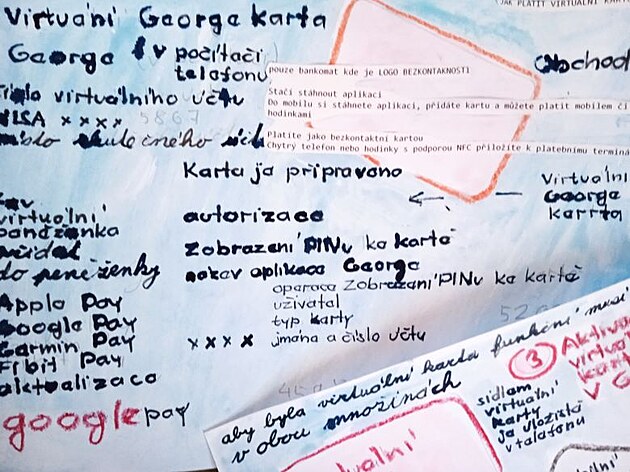 JAK PLATIT VIRTUÁLNÍ KART
Virtualní George karta
George v počítači
telefonu
Obchod
pouze bankomat kde je LOGO BEZKONTAKNOSTI
Stačí stáhnout aplikaci
Do mobilu si stáhnete aplikaci, přidáte kartu a můžete platit mobilem či
hodinkami
Platíte jako bezkontaktní kartou
Chytrý telefon nebo hodinky s podporou NFC přiložíte k platebnímu terminá
virtuálního účtu
VISA x x x x 5867
místo skutečného
Karta je připravena
virtuální
George
karrta
virtuální
autorizace
přidat
do peněženky
Zobrazení PINu ke kartě
název aplikace George
operace zobrazení PINu ke kartě
uživatel
typ karty
x x x x jméno a číslo účtu
Apple Pay
Google Pay
Garmin Pay
Fitbit Pay
aktualizace
google pay
aby byla virtuální karta funkční musí
v obou množinách
3
sídlem
virtuální
karty
je uložiště
v telefonu